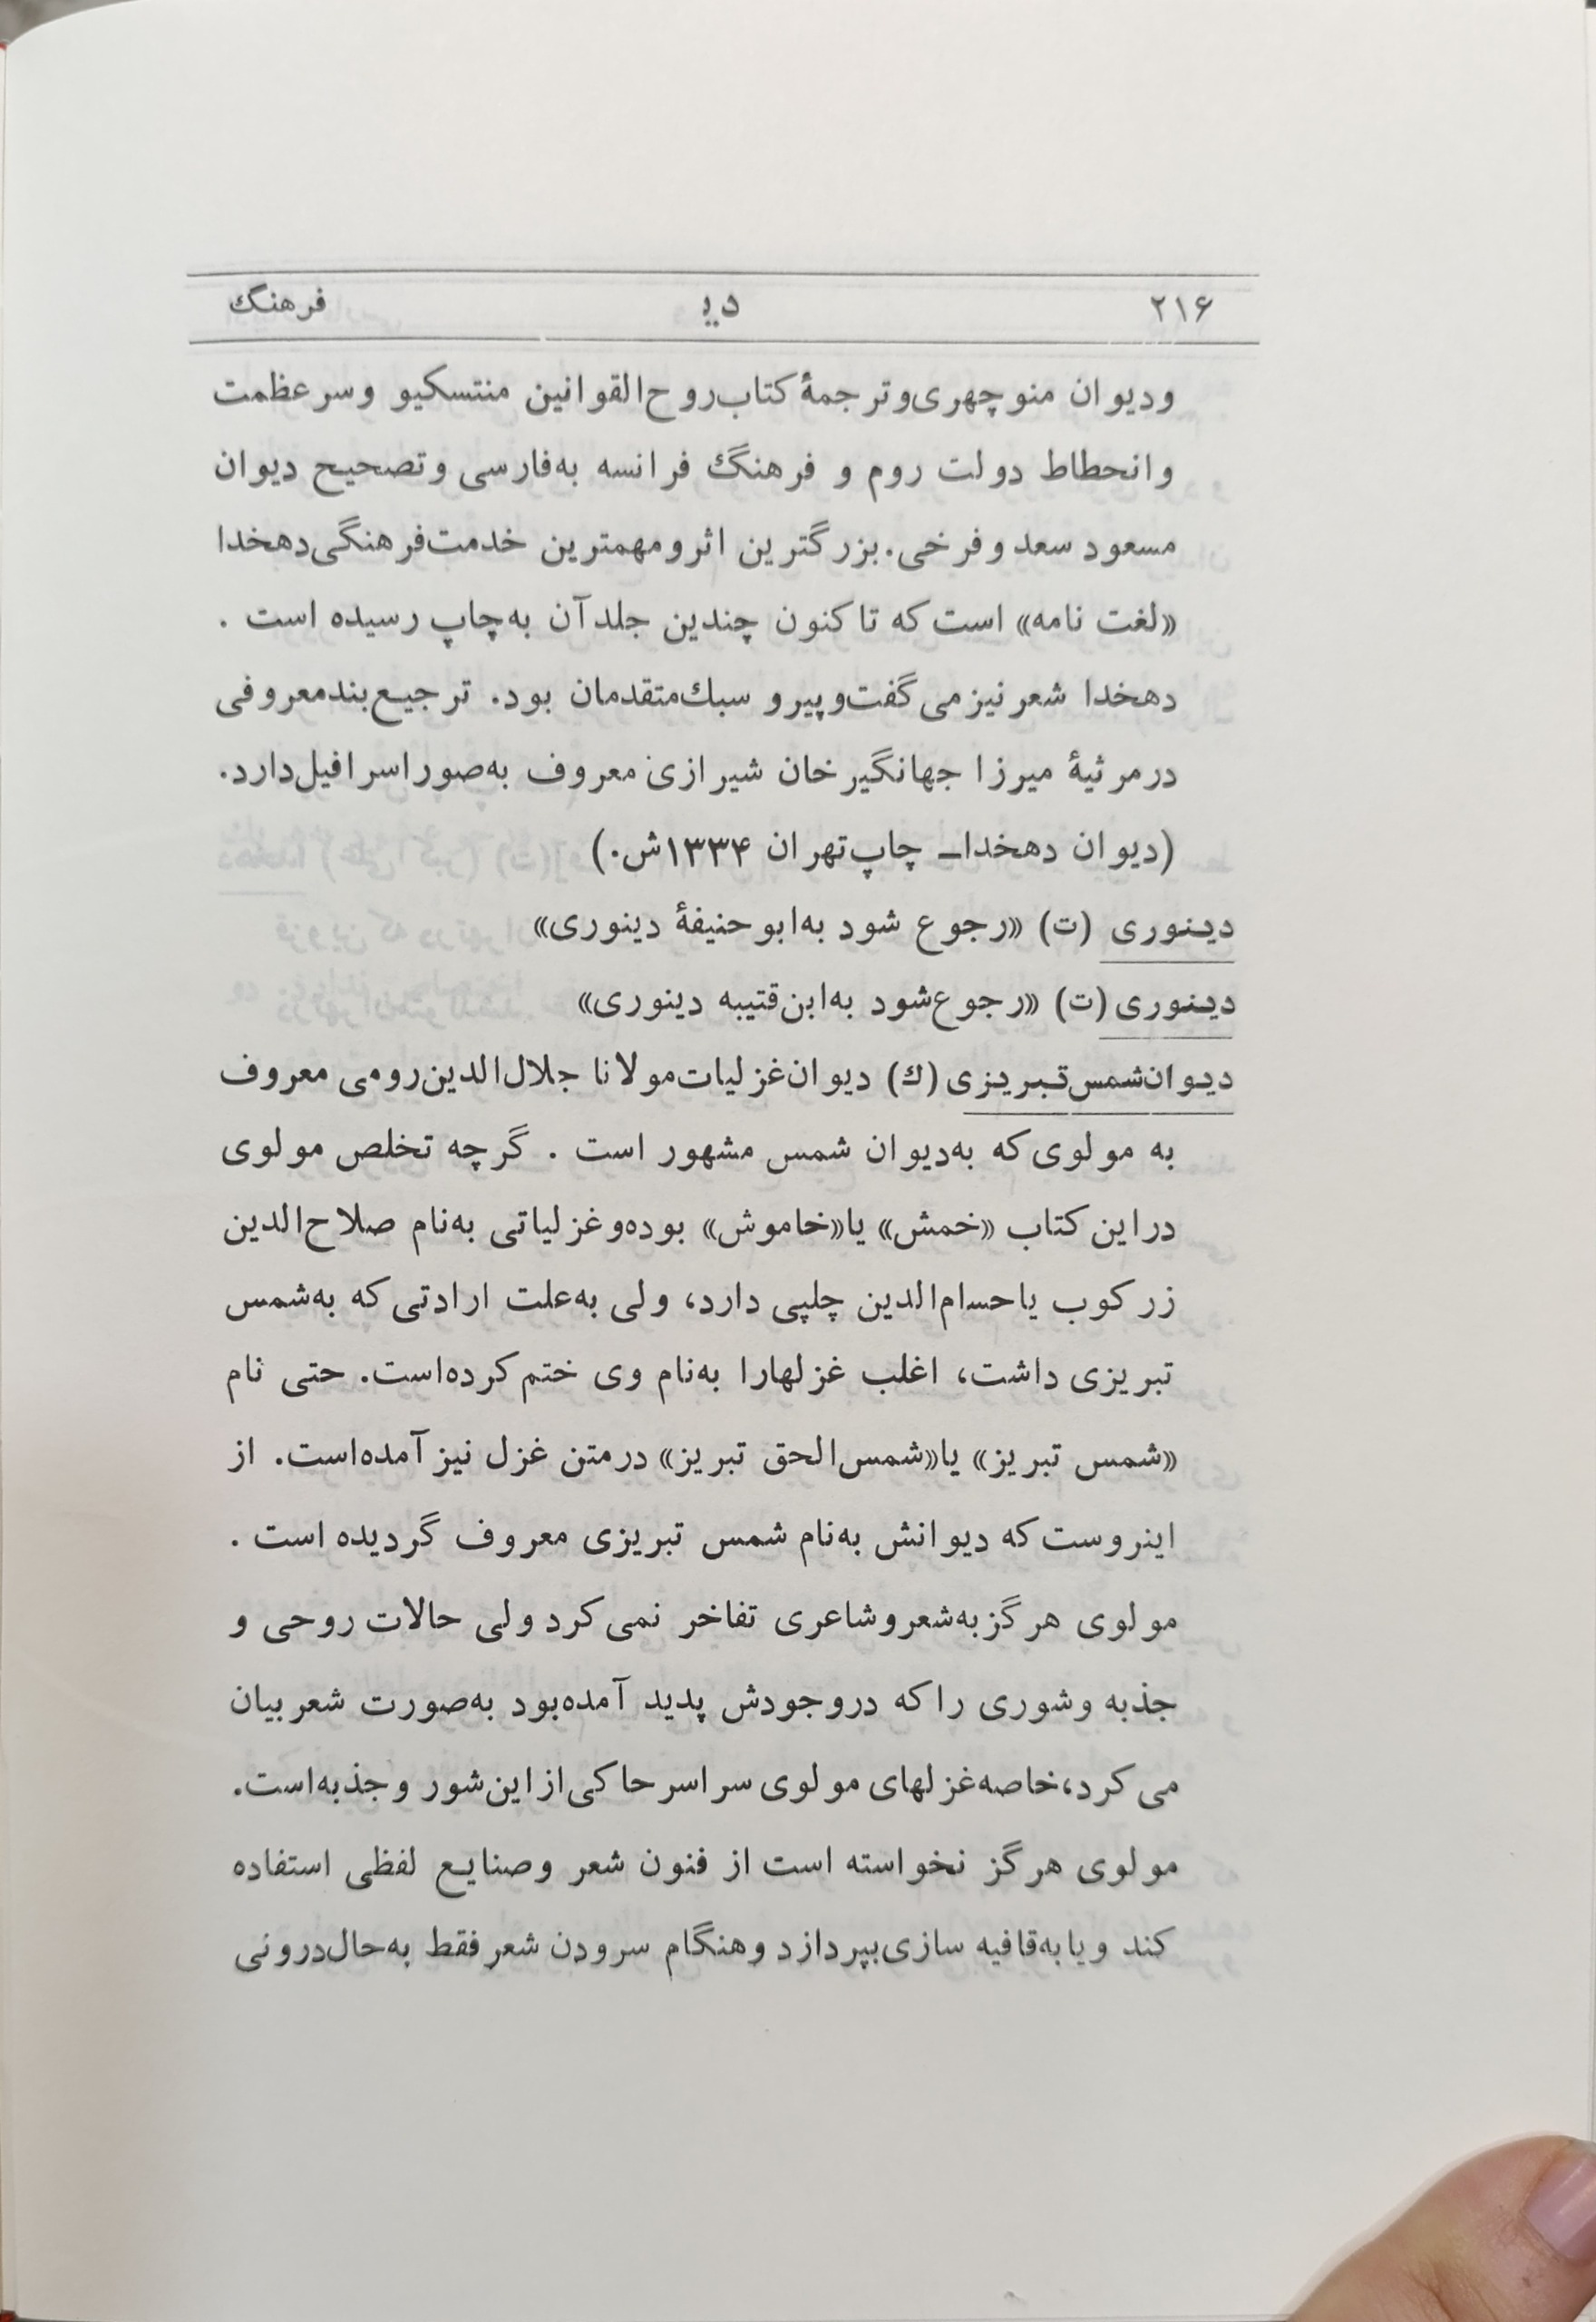 ۲۱۶ دیـ فرهنگ
ودیوان منوچهری‌وترجمهٔ کتاب‌روح‌القوانین منتسکیو وسرعظمت
وانحطاط دولت روم و فرهنگ فرانسه به‌فارسی وتصحیح دیوان
مسعود سعد وفرخی. بزرگترین اثرومهمترین خدمت‌فرهنگی‌دهخدا
«لغت نامه» است‌که تاکنون چندین جلدآن به‌چاپ رسیده است .
دهخدا شعرنیزمی‌گفت‌وپیرو سبك‌متقدمان بود. ترجیع‌بندمعروفی
درمرثیهٔ میرزا جهانگیرخان شیرازی‌معروف به‌صوراسرافیل‌دارد.
(دیوان دهخداـ چاپ‌تهران ۱۳۳۴ش.)
دینوری (ت) «رجوع شود به‌ابوحنیفهٔ دینوری»
دینوری (ت) «رجوع‌شود به‌ابن‌قتیبه دینوری»
دیوان‌شمس‌تبریزی (ك) دیوان‌غزلیات‌مولانا جلال‌الدین‌رومی معروف
به مولوی‌که به‌دیوان شمس مشهور است . گرچه تخلص مولوی
دراین کتاب «خمش» یا«خاموش» بوده‌وغزلیاتی به‌نام صلاح‌الدین
زرکوب یاحسام‌الدین چلپی دارد، ولی به‌علت ارادتی‌که به‌شمس
تبریزی داشت، اغلب غزلهارا به‌نام وی ختم‌کرده‌است. حتی نام
«شمس تبریز» یا«شمس‌الحق تبریز» درمتن غزل نیزآمده‌است. از
اینروست‌که دیوانش به‌نام شمس تبریزی معروف گردیده است .
مولوی هرگزبه‌شعروشاعری تفاخر نمی‌کرد ولی حالات روحی و
جذبه وشوری راکه دروجودش پدید آمده‌بود به‌صورت شعربیان
می‌کرد،خاصه‌غزلهای مولوی سراسرحاکی‌ازاین‌شور وجذبه‌است.
مولوی هرگز نخواسته است از فنون شعر وصنایع لفظی استفاده
کند ویابه‌قافیه سازی‌بپردازد وهنگام سرودن شعرفقط به‌حال‌درونی